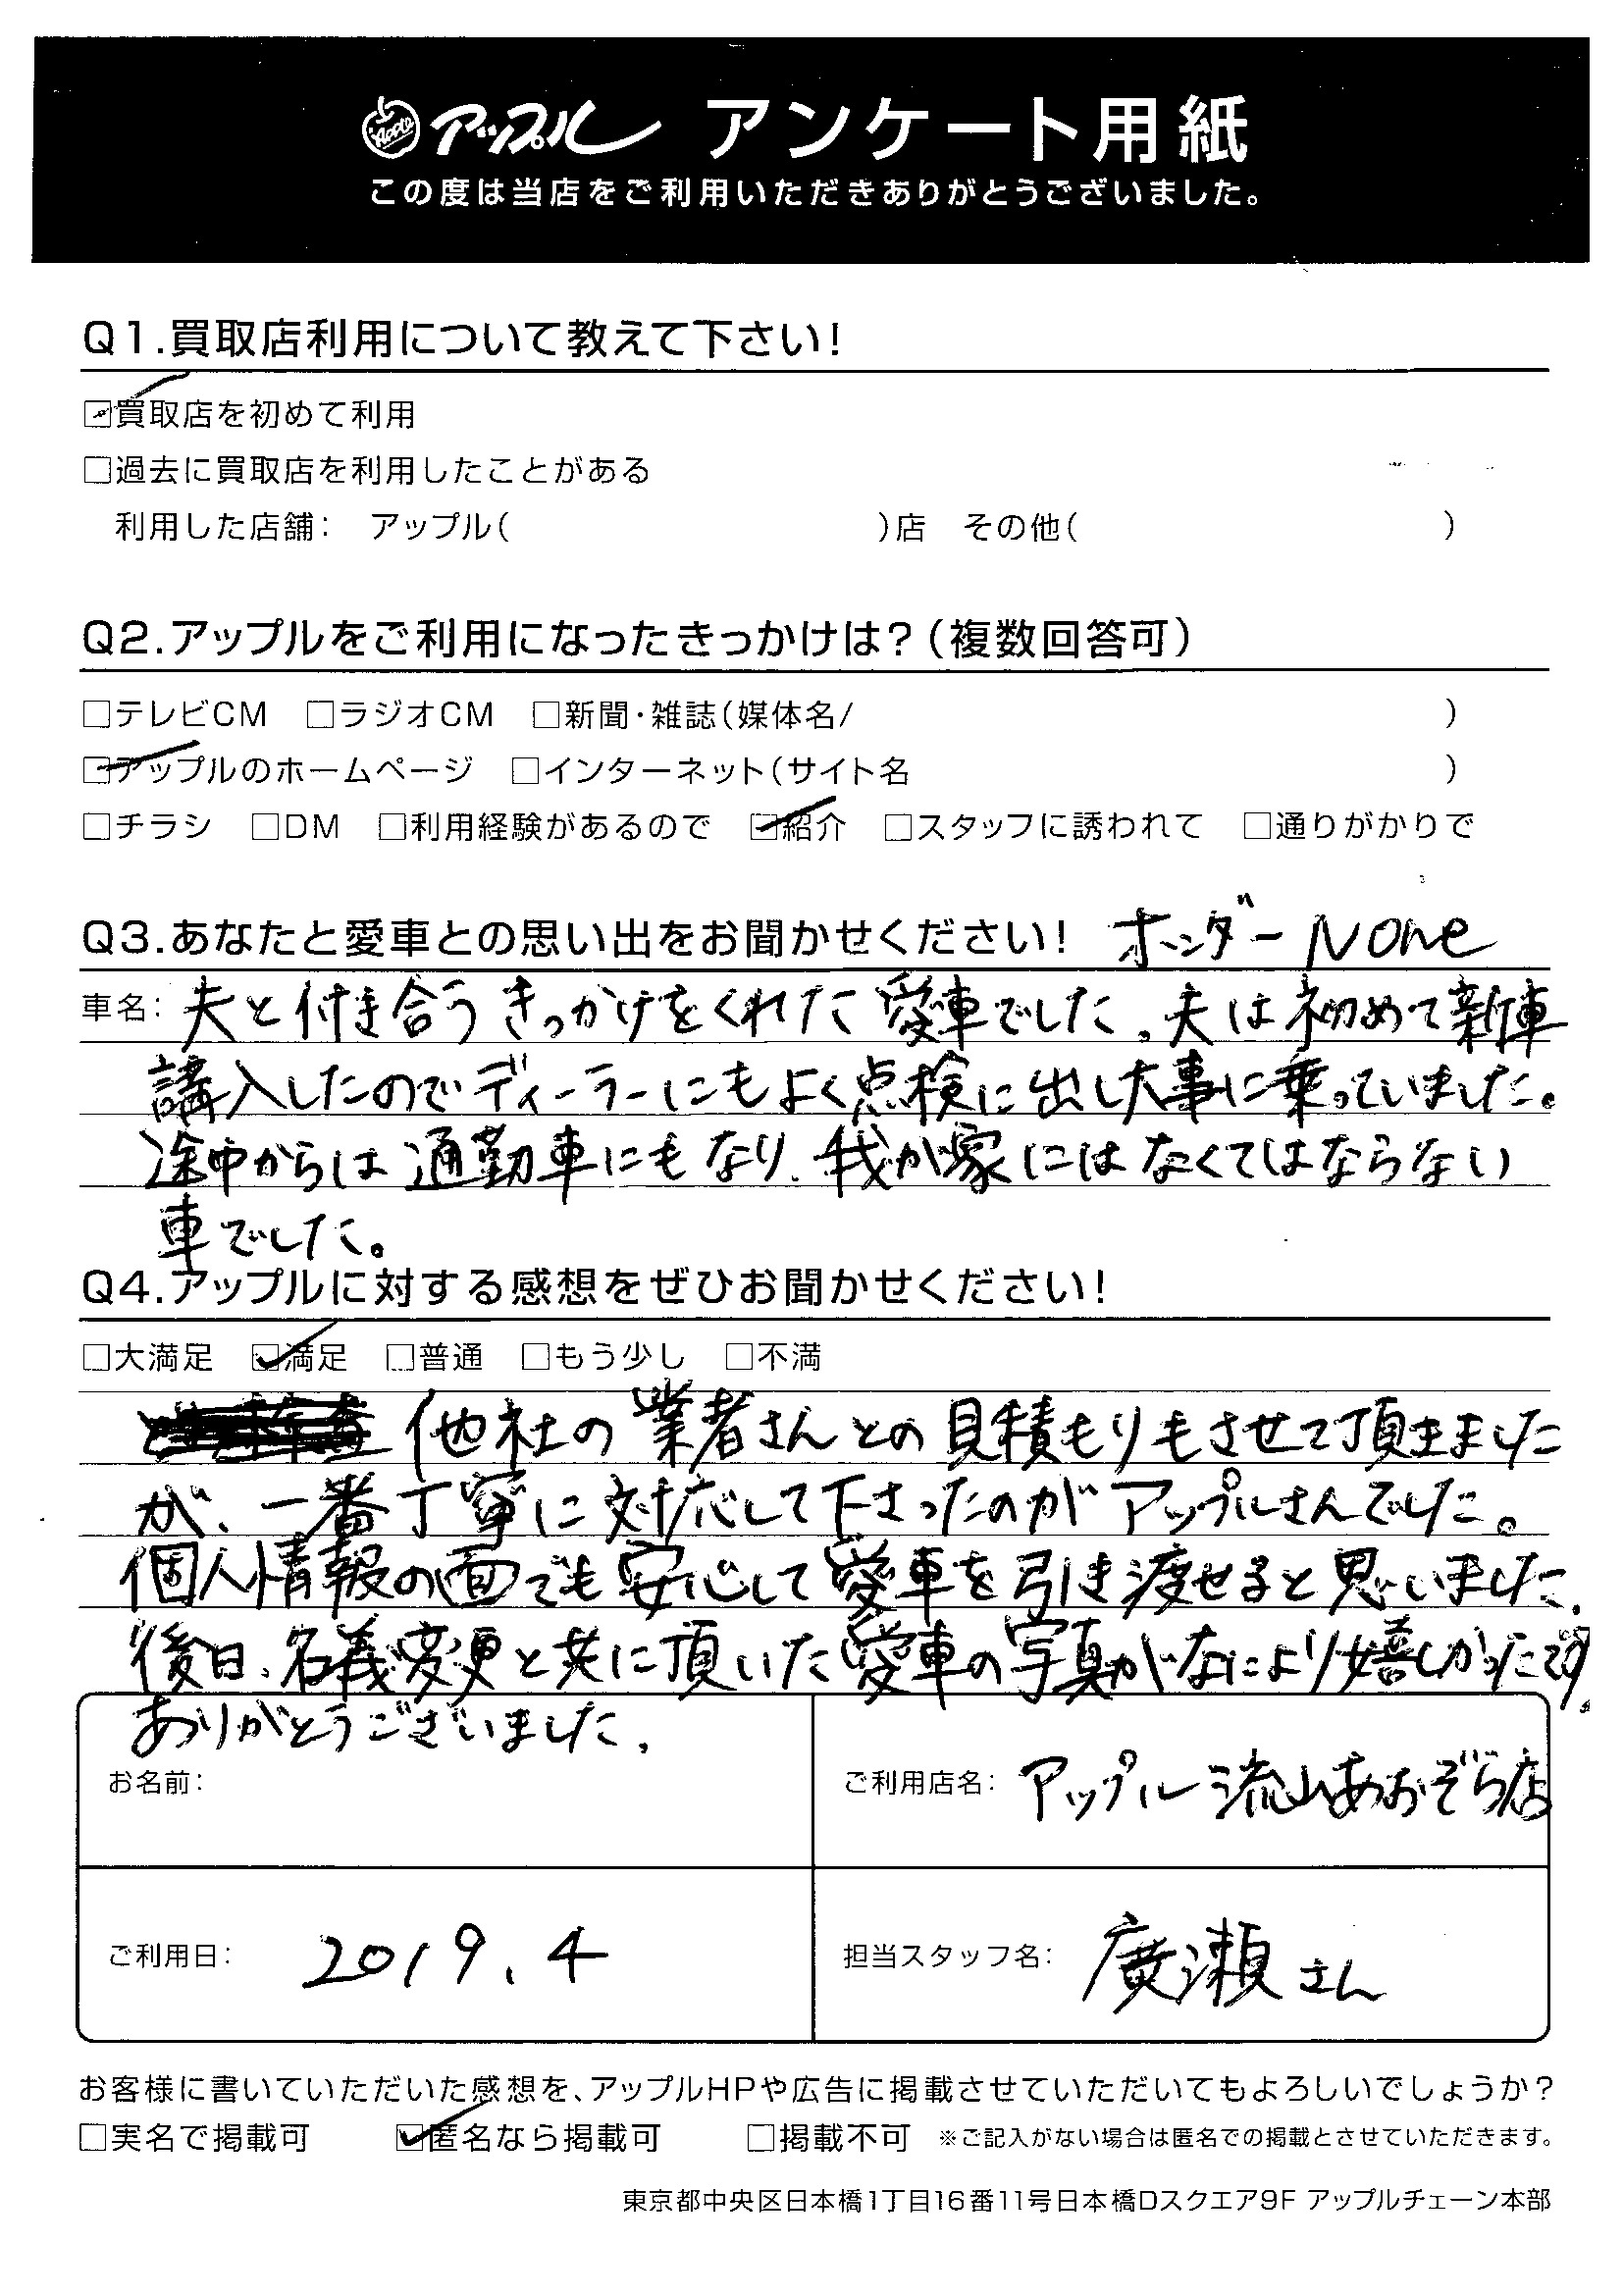 アップル アンケート用紙
この度は当店をご利用いただきありがとうございました。
Q1.買取店利用について教えて下さい!
☑買取店を初めて利用
□過去に買取店を利用したことがある
利用した店舗: アップル( )店 その他( )
Q2.アップルをご利用になったきっかけは?(複数回答可)
□テレビCM □ラジオCM □新聞・雑誌(媒体名/ )
☑アップルのホームページ □インターネット(サイト名 )
□チラシ □DM □利用経験があるので ☑紹介 □スタッフに誘われて □通りがかりで
Q3.あなたと愛車との思い出をお聞かせください! ホンダー None
車名: 夫と付き合うきっかけをくれた愛車でした。夫は初めて新車
購入したのでディーラーにもよく点検に出し大事に乗っていました。
途中からは通勤車にもなり、我が家にはなくてはならない
車でした。
Q4.アップルに対する感想をぜひお聞かせください!
□大満足 ☑満足 □普通 □もう少し □不満
他社の業者さんとの見積もりもさせて頂きました
が、一番丁寧に対応して下さったのがアップルさんでした。
個人情報の面でも安心して愛車を引き渡せると思いました。
後日、名義変更と共に頂いた愛車の写真がなにより嬉しかったです。
ありがとうございました。
お名前:
ご利用店名: アップル流山あおぞら店
ご利用日: 2019.4
担当スタッフ名: 廣瀬さん
お客様に書いていただいた感想を、アップルHPや広告に掲載させていただいてもよろしいでしょうか?
□実名で掲載可 ☑匿名なら掲載可 □掲載不可 ※ご記入がない場合は匿名での掲載とさせていただきます。
東京都中央区日本橋1丁目16番11号日本橋Dスクエア9F アップルチェーン本部